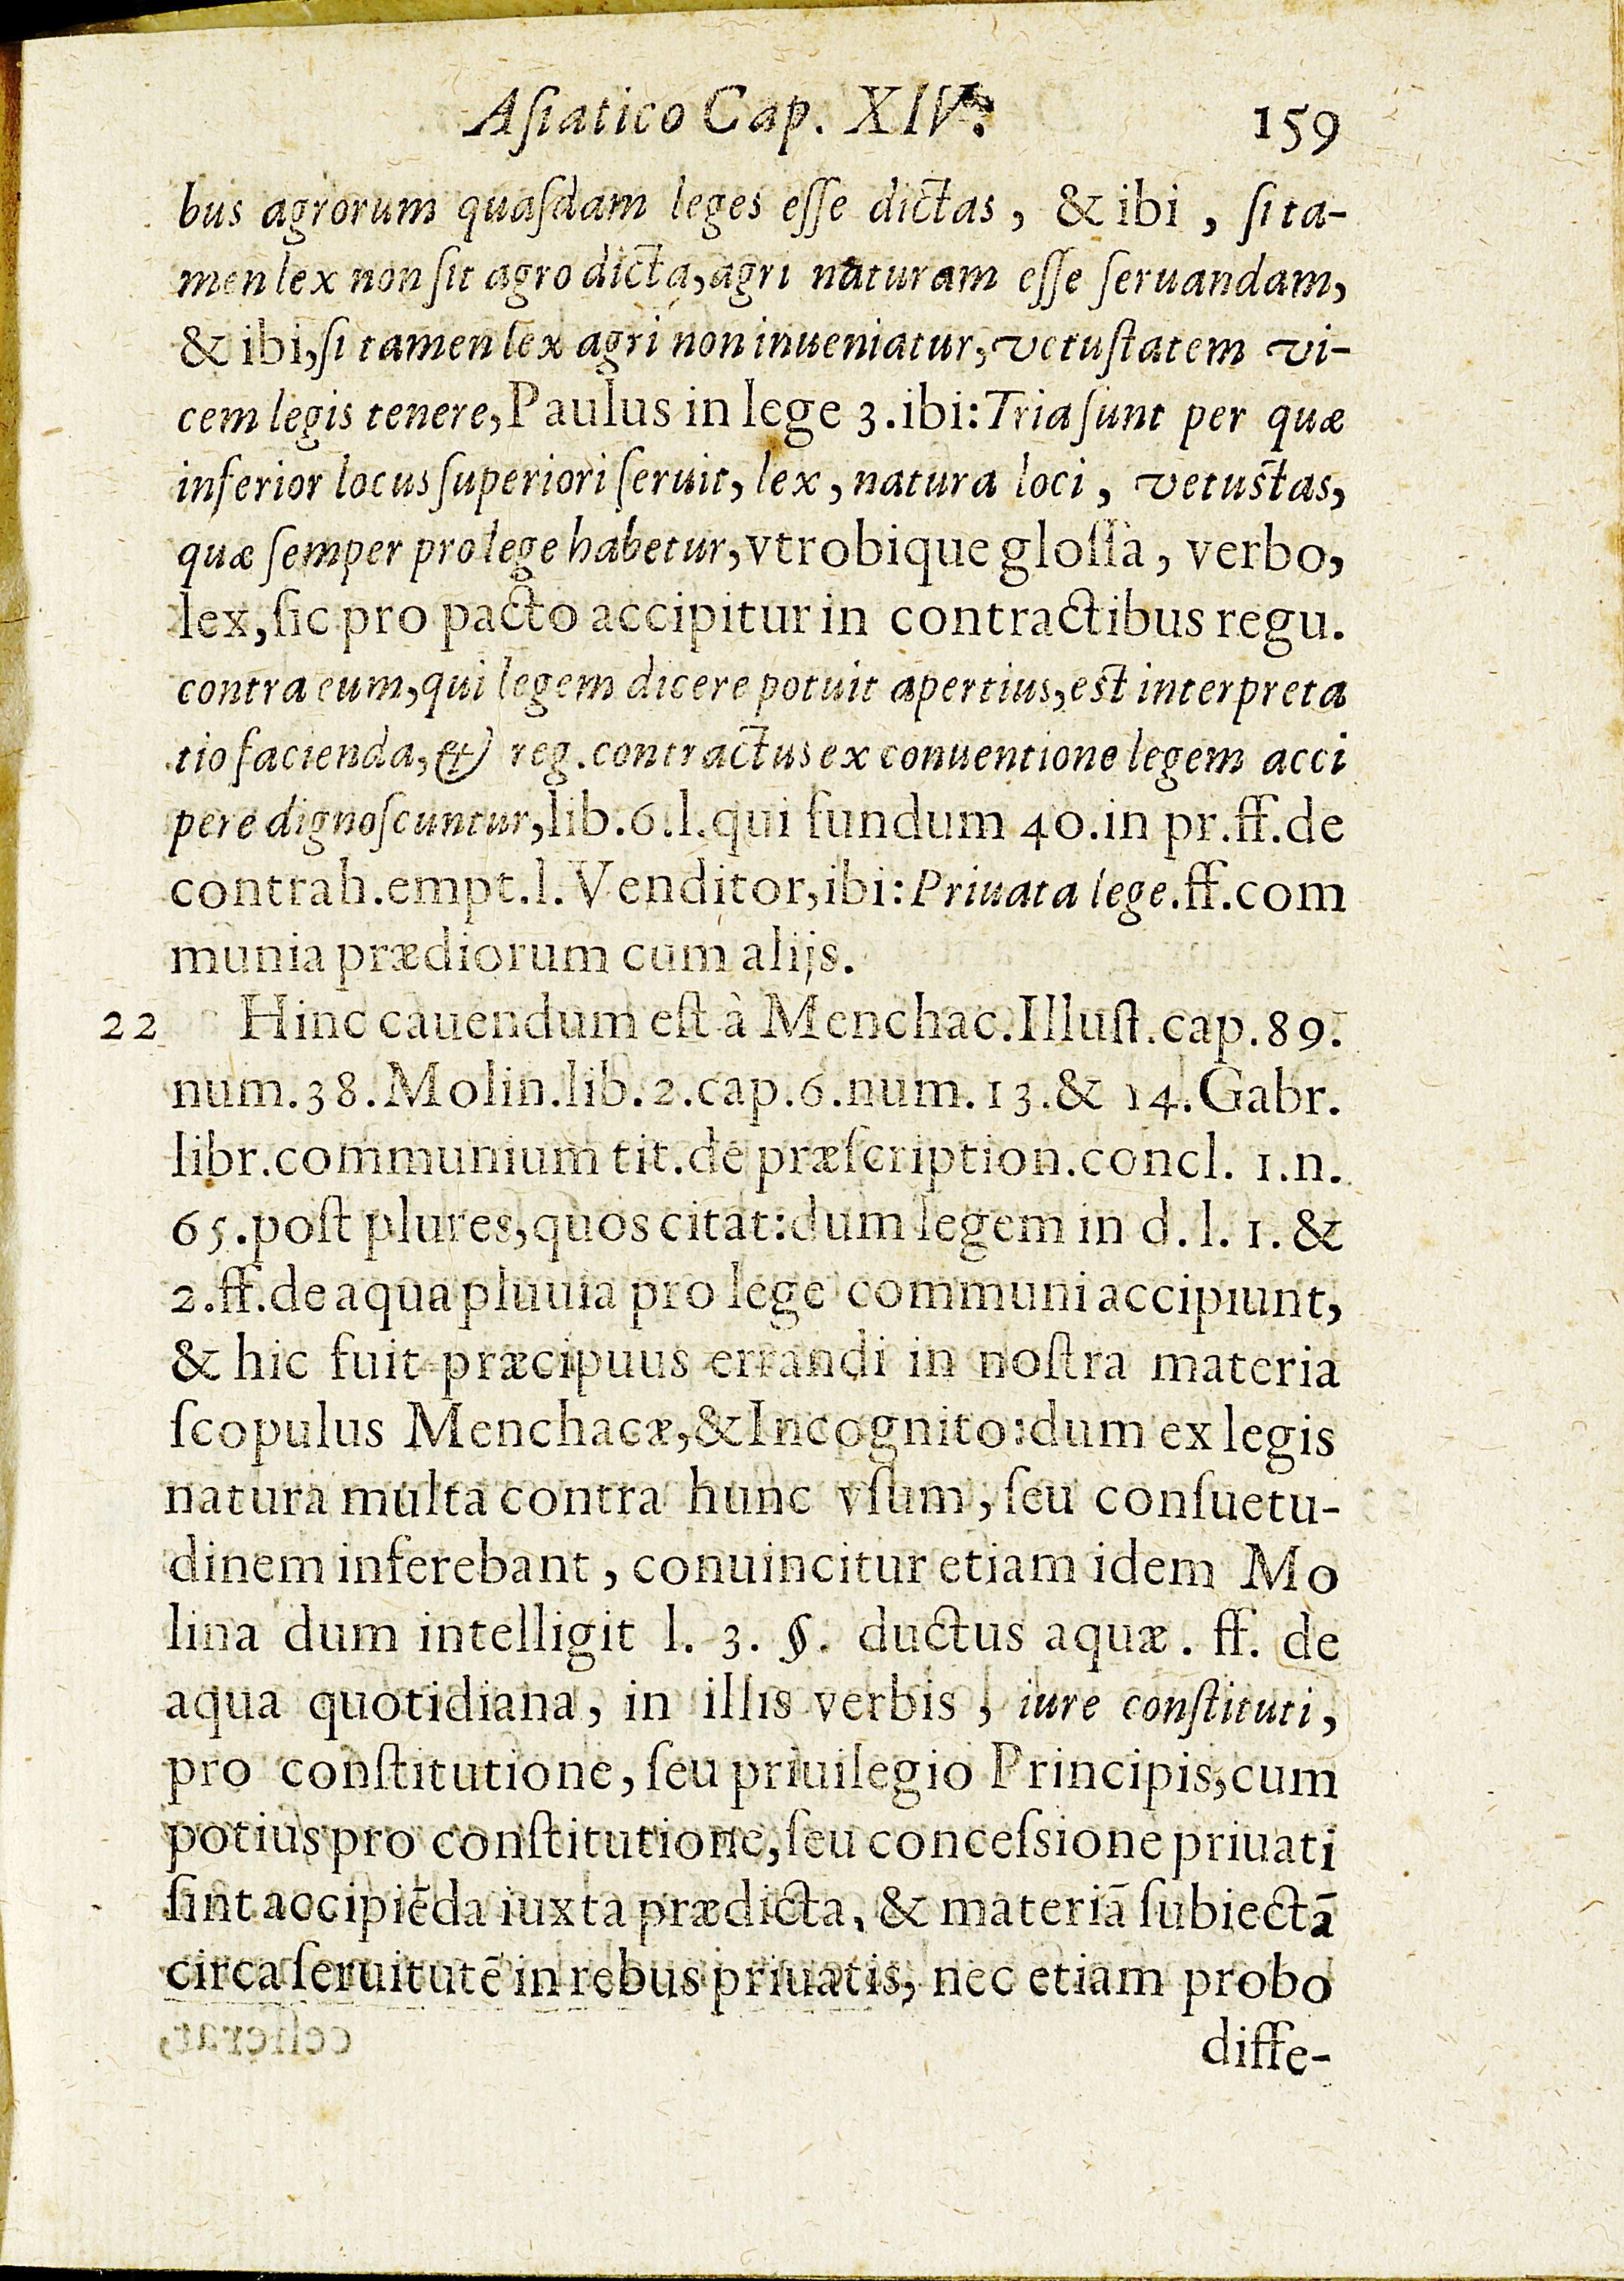 Aſiatico Cap. XIV. 159
bus agrorum quaſdam leges eſſe dictas, & ibi, ſi ta-
men lex non ſit agro dicta, agri naturam eſſe ſeruandam,
& ibi, ſi tamen lex agri non inueniatur, vetuſtatem vi-
cem legis tenere, Paulus in lege 3. ibi: Tria ſunt per quæ
inferior locus ſuperiori ſeruit, lex, natura loci, vetuſtas,
quæ ſemper pro lege habetur, vtrobique gloſſa, verbo,
lex, ſic pro pacto accipitur in contractibus regu.
contra eum, qui legem dicere potuit apertius, eſt interpreta
tio facienda, & reg. contractus ex conuentione legem acci
pere dignoſcuntur, lib. 6. l. qui fundum 40. in pr. ff. de
contrah. empt. l. Venditor, ibi: Priuata lege. ff. com
munia prædiorum cum alijs.
22 Hinc cauendum eſt à Menchac. Illuſt. cap. 89.
num. 38. Molin. lib. 2. cap. 6. num. 13. & 14. Gabr.
libr. communium tit. de præſcription. concl. 1. n.
65. poſt plures, quos citat: dum legem in d. l. 1. &
2. ff. de aqua pluuia pro lege communi accipiunt,
& hic fuit præcipuus errandi in noſtra materia
ſcopulus Menchacæ, & Incognito: dum ex legis
natura multa contra hunc vſum, ſeu conſuetu-
dinem inferebant, conuincitur etiam idem Mo
lina dum intelligit l. 3. §. ductus aquæ. ff. de
aqua quotidiana, in illis verbis, iure conſtituti,
pro conſtitutione, ſeu priuilegio Principis, cum
potius pro conſtitutione, ſeu conceſsione priuati
ſint accipiēda iuxta prædicta, & materiā ſubiectā
circa ſeruitutē in rebus priuatis, nec etiam probo
diffe-